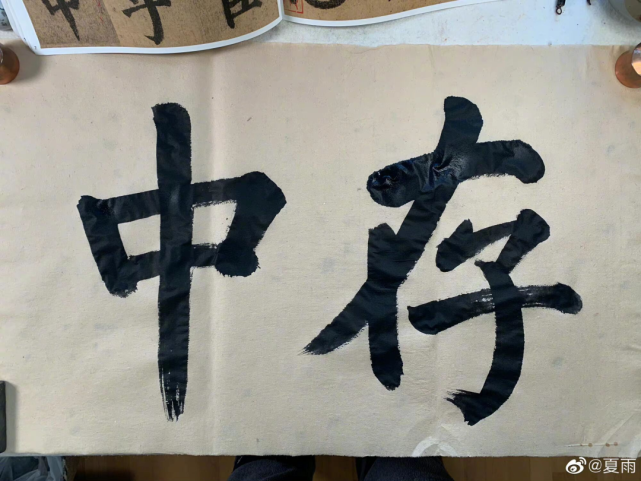 存中
@夏雨